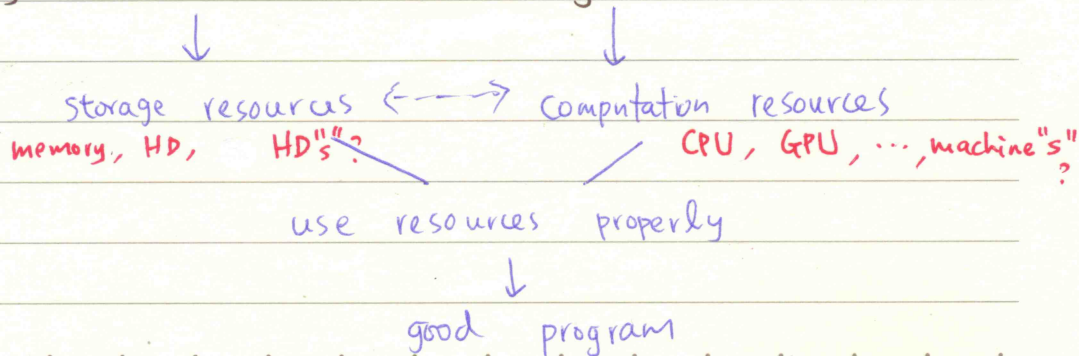 storage resources <---> computation resources
memory, HD, HD"s"? CPU, GPU, ..., machine"s"?
use resources properly
good program